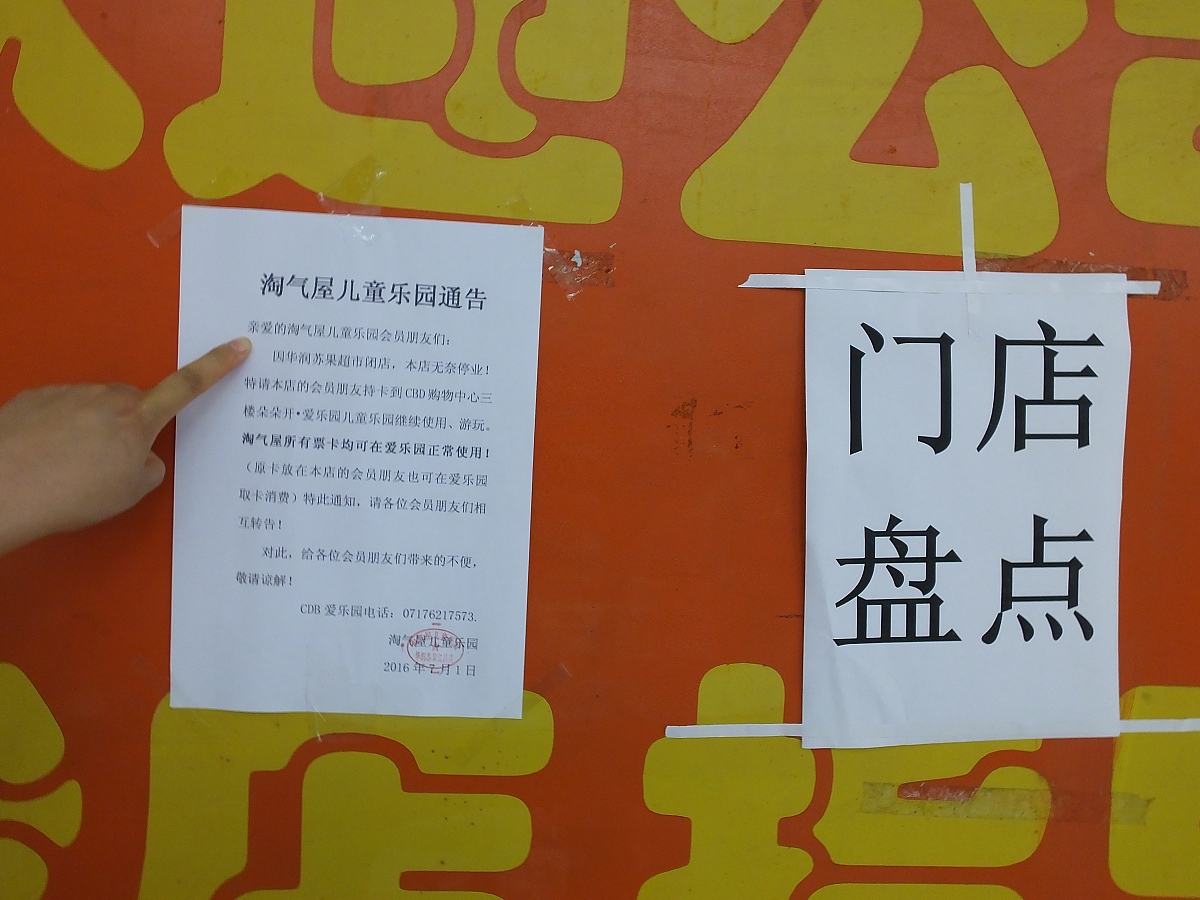 淘气屋儿童乐园通告
亲爱的淘气屋儿童乐园会员朋友们：
因华润苏果超市闭店，本店无奈停业！
特请本店的会员朋友持卡到CBD购物中心三
楼朵朵开•爱乐园儿童乐园继续使用、游玩。
淘气屋所有票卡均可在爱乐园正常使用！
（原卡放在本店的会员朋友也可在爱乐园
取卡消费）特此通知，请各位会员朋友们相
互转告！
对此，给各位会员朋友们带来的不便，
敬请谅解！
CDB 爱乐园电话：07176217573.
淘气屋儿童乐园
2016 年 7 月 1 日
门店
盘点